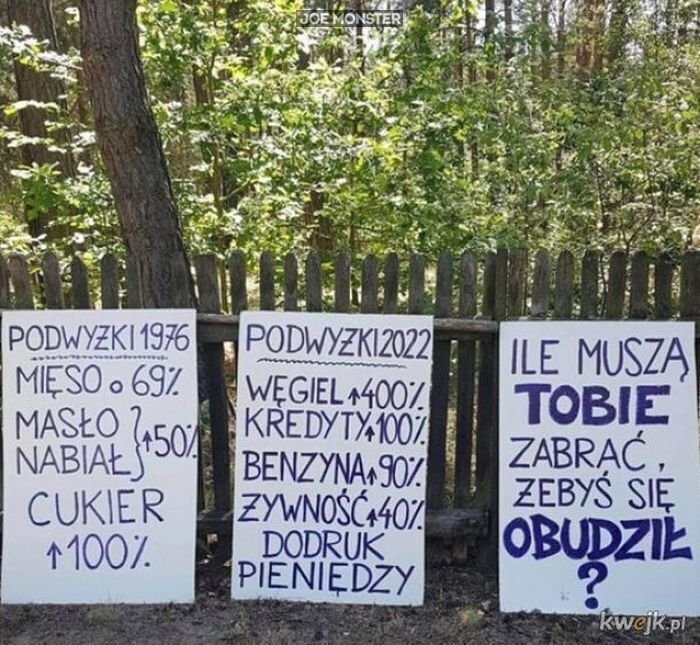 JOE MONSTER
PODWYŻKI 1976
MIĘSO o 69%
MASŁO
NABIAŁ } ↑50%
CUKIER
↑100%
PODWYŻKI 2022
WĘGIEL ↑400%
KREDYTY ↑100%
BENZYNA ↑90%
ŻYWNOŚĆ ↑40%
DODRUK
PIENIĘDZY
ILE MUSZĄ
TOBIE
ZABRAĆ,
ŻEBYŚ SIĘ
OBUDZIŁ
?
kwejk.pl